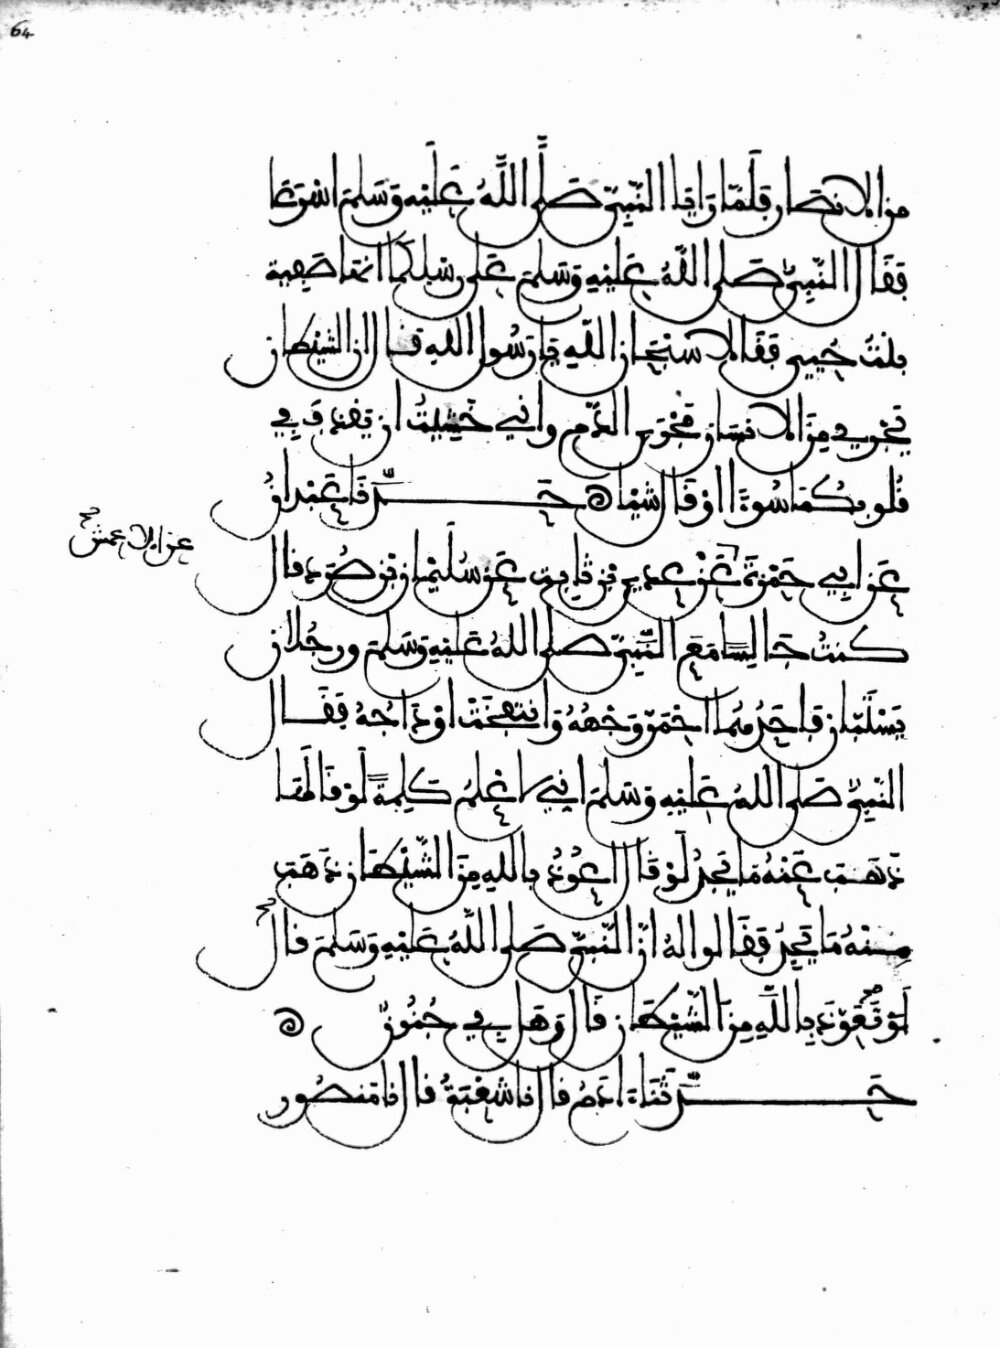 64
من الانصار فلما رايا النبي صلى الله عليه وسلم اسرعا
فقال النبي صلى الله عليه وسلم على رسلكما انها صفية
بنت حيي فقالا سبحان الله يا رسول الله قال ان الشيطان
يجري من الانسان مجرى الدم واني خشيت ان يقذف في
قلوبكما سوءا او قال شيئا حدثنا عبدان
عن ابي حمزة عن عدي بن ثابت عن سليمان بن صرد قال
عن الاعمش صح
كنت جالسا مع النبي صلى الله عليه وسلم ورجلان
يستبان فاحدهما احمر وجهه وانتفخت اوداجه فقال
النبي صلى الله عليه وسلم اني اعلم كلمة لو قالها
ذهب عنه ما يجد لو قال اعوذ بالله من الشيطان ذهب
عنه ما يجد فقالوا له ان النبي صلى الله عليه وسلم قال
لو تعوذ بالله من الشيطان قال وهل بي جنون
حدثنا ادم قال نا شعبة قال نا منصور